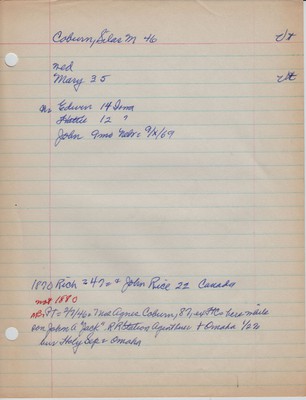 Coburn, Silas M 46 r/r
med
Mary 35
Edwin 14 Iowa
Hattie 12 "
John 9mo Nebr = 9/x/69
1870 Rich #47 = + John Rice 22 Canada
not 1880
PT = 2/7/46 = Mrs Agnes Coburn, 87, ex FtC = here while
son John A "Jack" RR Station Agent here + Omaha 1/2
bur Holy Sep = Omaha